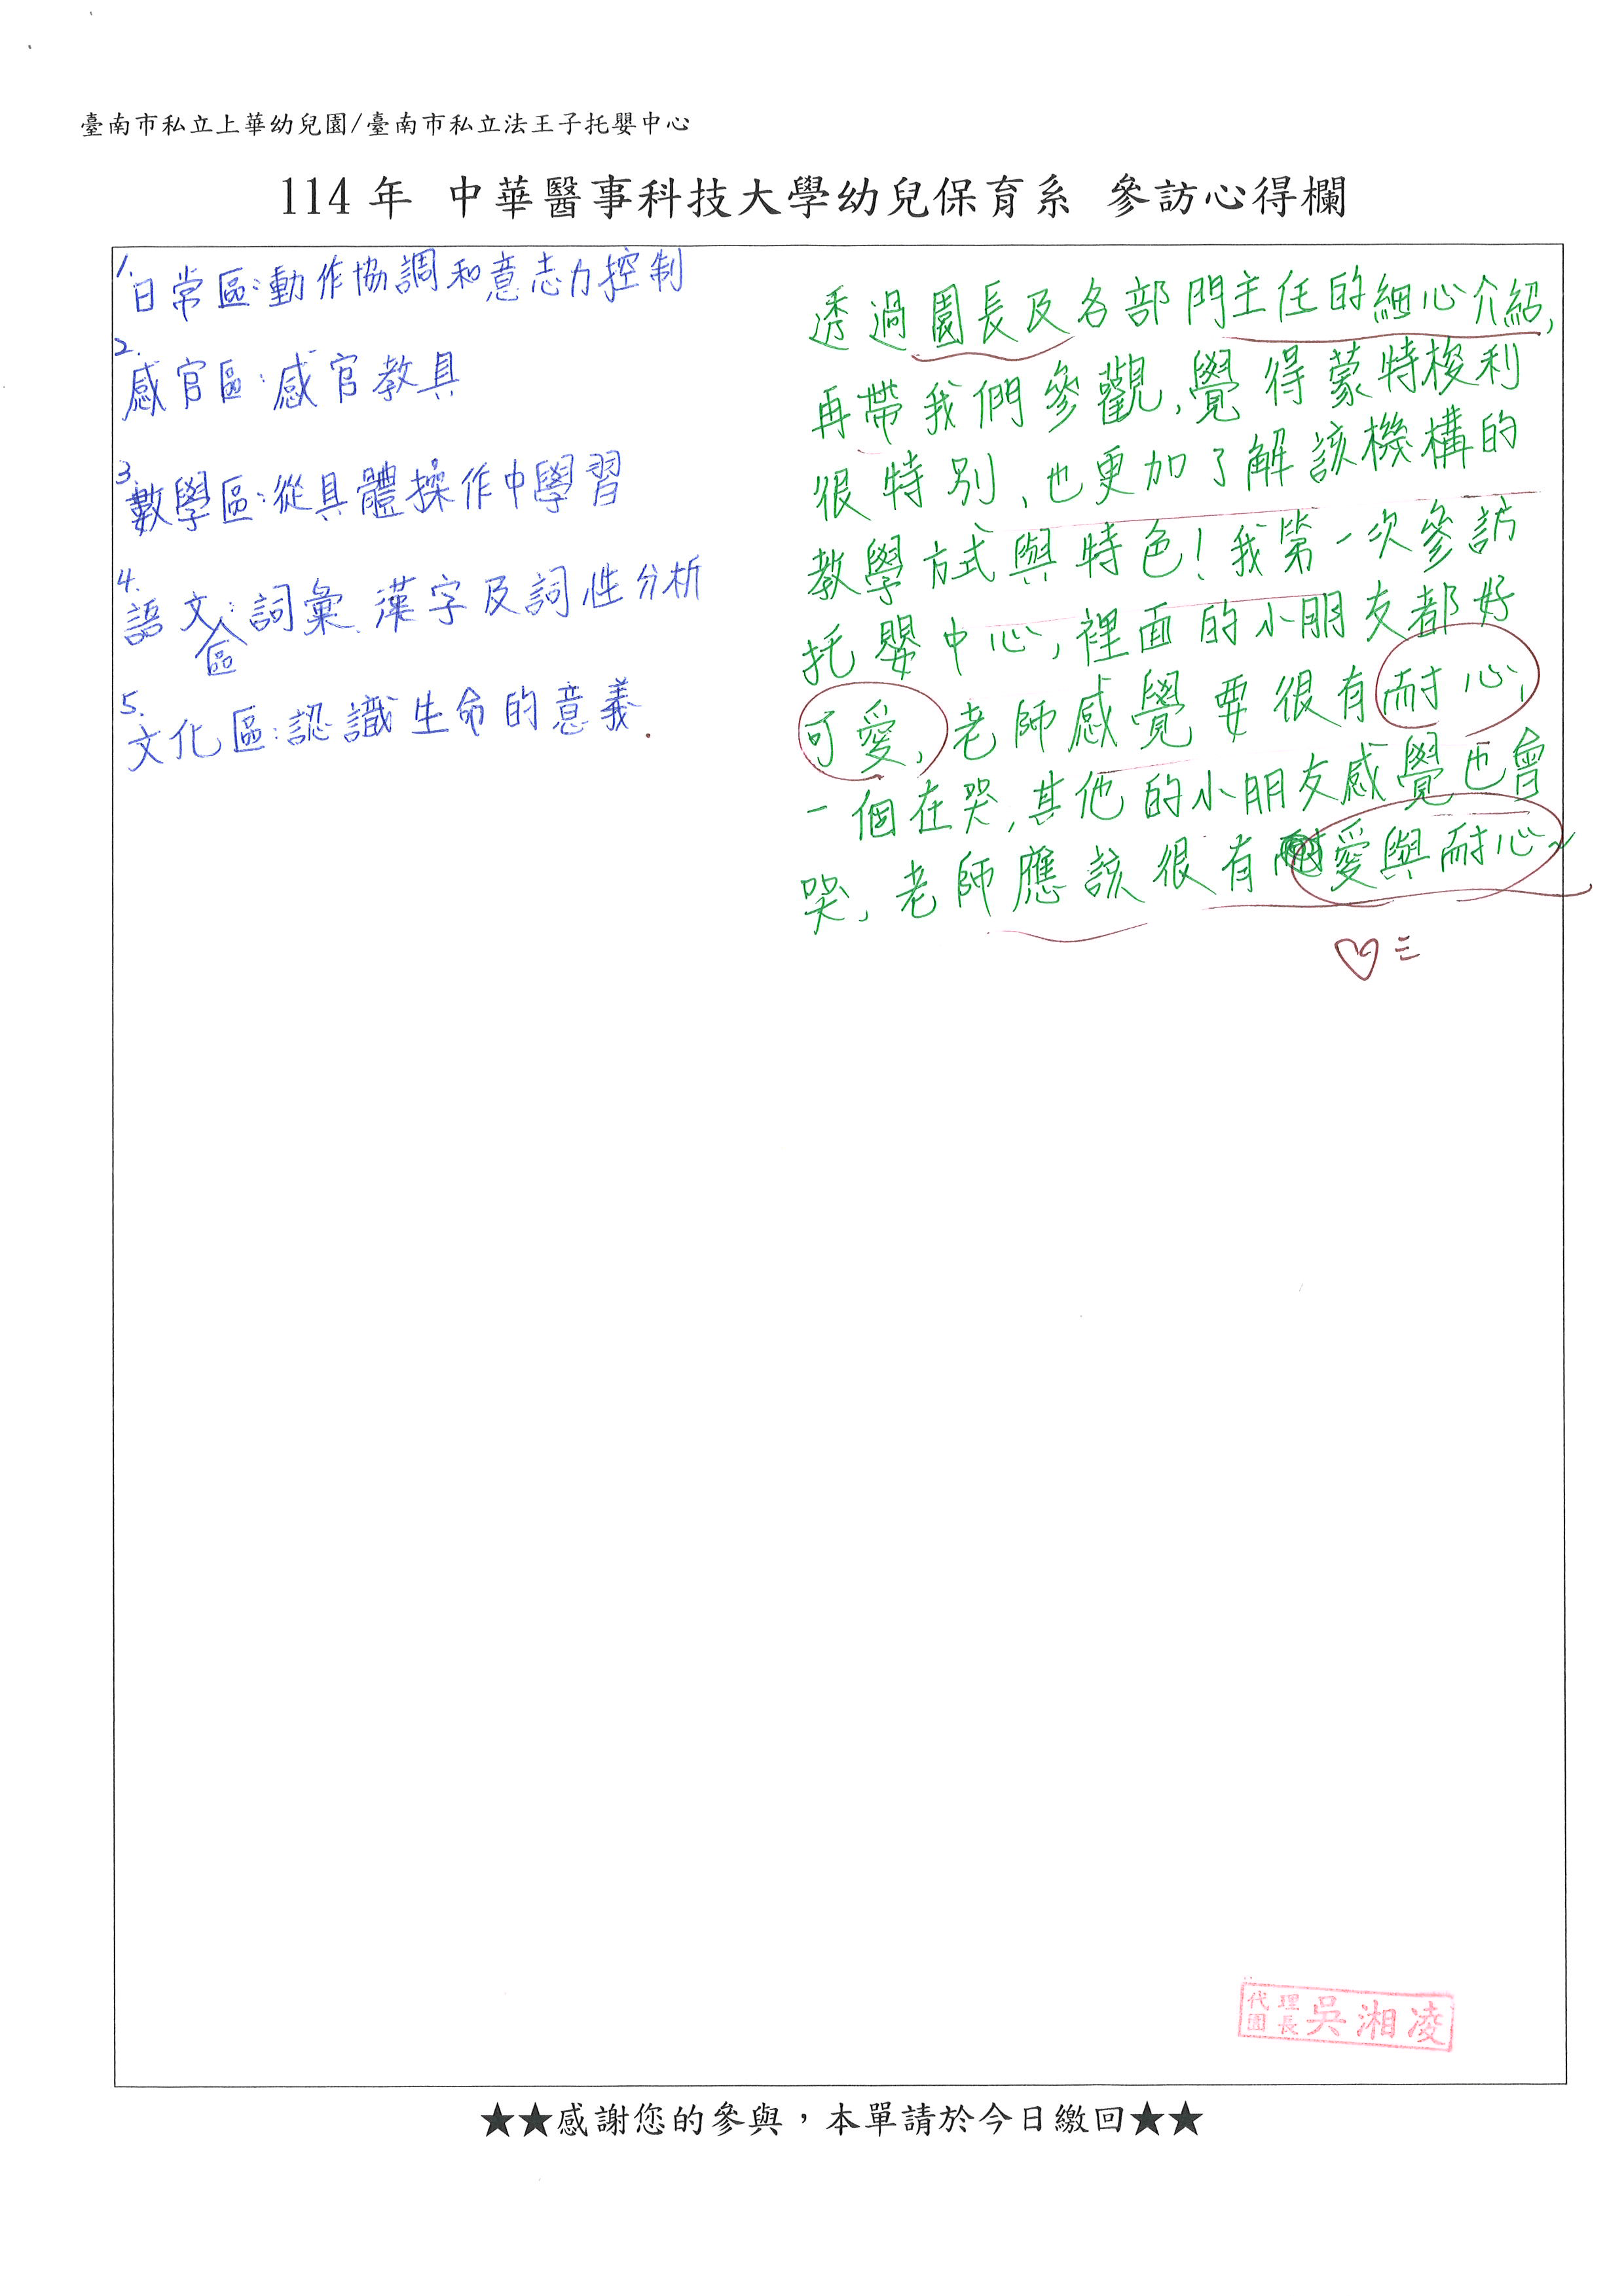 臺南市私立上華幼兒園/臺南市私立法王子托嬰中心
114年 中華醫事科技大學幼兒保育系 參訪心得欄
1.日常區:動作協調和意志力控制
2.感官區:感官教具
3.數學區:從具體操作中學習
4.語文區:詞彙、漢字及詞性分析
5.文化區:認識生命的意義.
透過園長及各部門主任的細心介紹,
再帶我們參觀,覺得蒙特梭利
很特別,也更加了解該機構的
教學方式與特色!我第一次參訪
托嬰中心,裡面的小朋友都好
可愛,老師感覺要很有耐心,
一個在哭,其他的小朋友感覺也會
哭,老師應該很有愛與耐心~
代理園長 吳湘凌
★★感謝您的參與，本單請於今日繳回★★